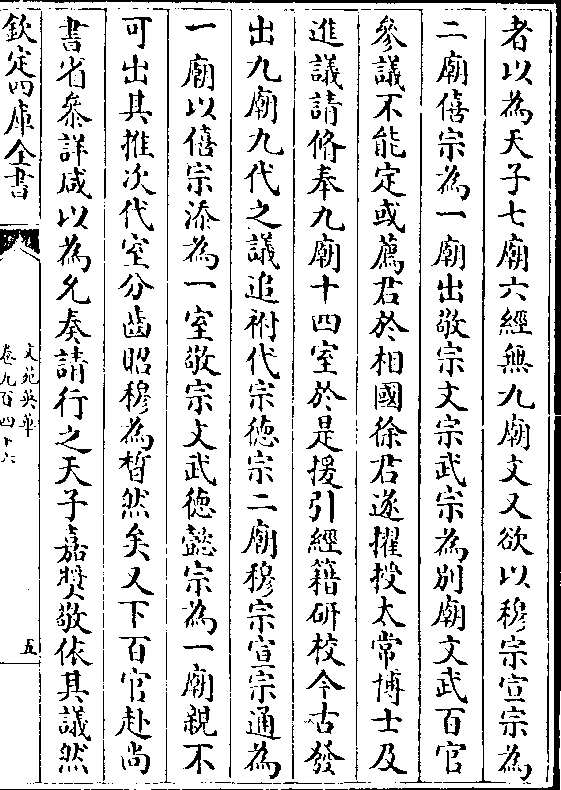 者以為天子七廟六經無九廟文又欲以穆宗宣宗為
二廟僖宗為一廟出敬宗文宗武宗為別廟文武百官
參議不能定或薦君於相國徐君遂擢授太常博士及
進議請脩奉九廟十四室於是援引經籍研校今古發
出九廟九代之議追祔代宗德宗二廟穆宗宣宗通為
一廟以僖宗添為一室敬宗文武德懿宗為一廟親不
可出其推次代室分齒昭穆為晳然矣又下百官赴尚
書省叅詳咸以為允奏請行之天子嘉奬敬依其議然
欽定四庫全書
文苑英華
卷九百四十六
五